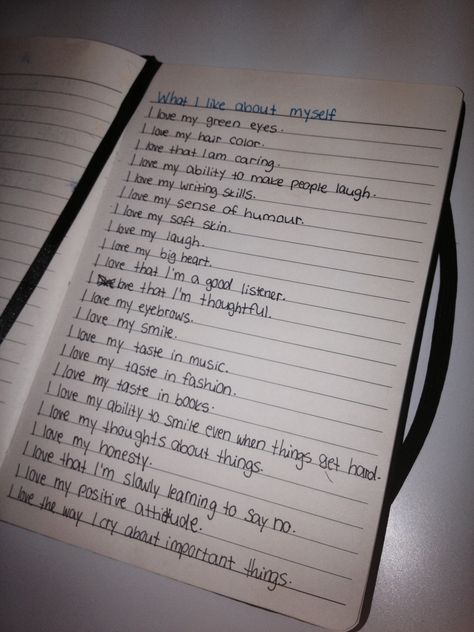 What I like about myself
I love my green eyes.
I love my hair color.
I love that I am caring.
I love my ability to make people laugh.
I love my writing skills.
I love my sense of humour.
I love my soft skin.
I love my laugh.
I love my big heart.
I love that I'm a good listener.
I love that I'm thoughtful.
I love my eyebrows.
I love my smile.
I love my taste in music.
I love my taste in fashion.
I love my taste in books.
I love my ability to smile even when things get hard.
I love my thoughts about things.
I love my honesty.
I love that I'm slowly learning to say no.
I love my positive attitude.
I love the way I cry about important things.